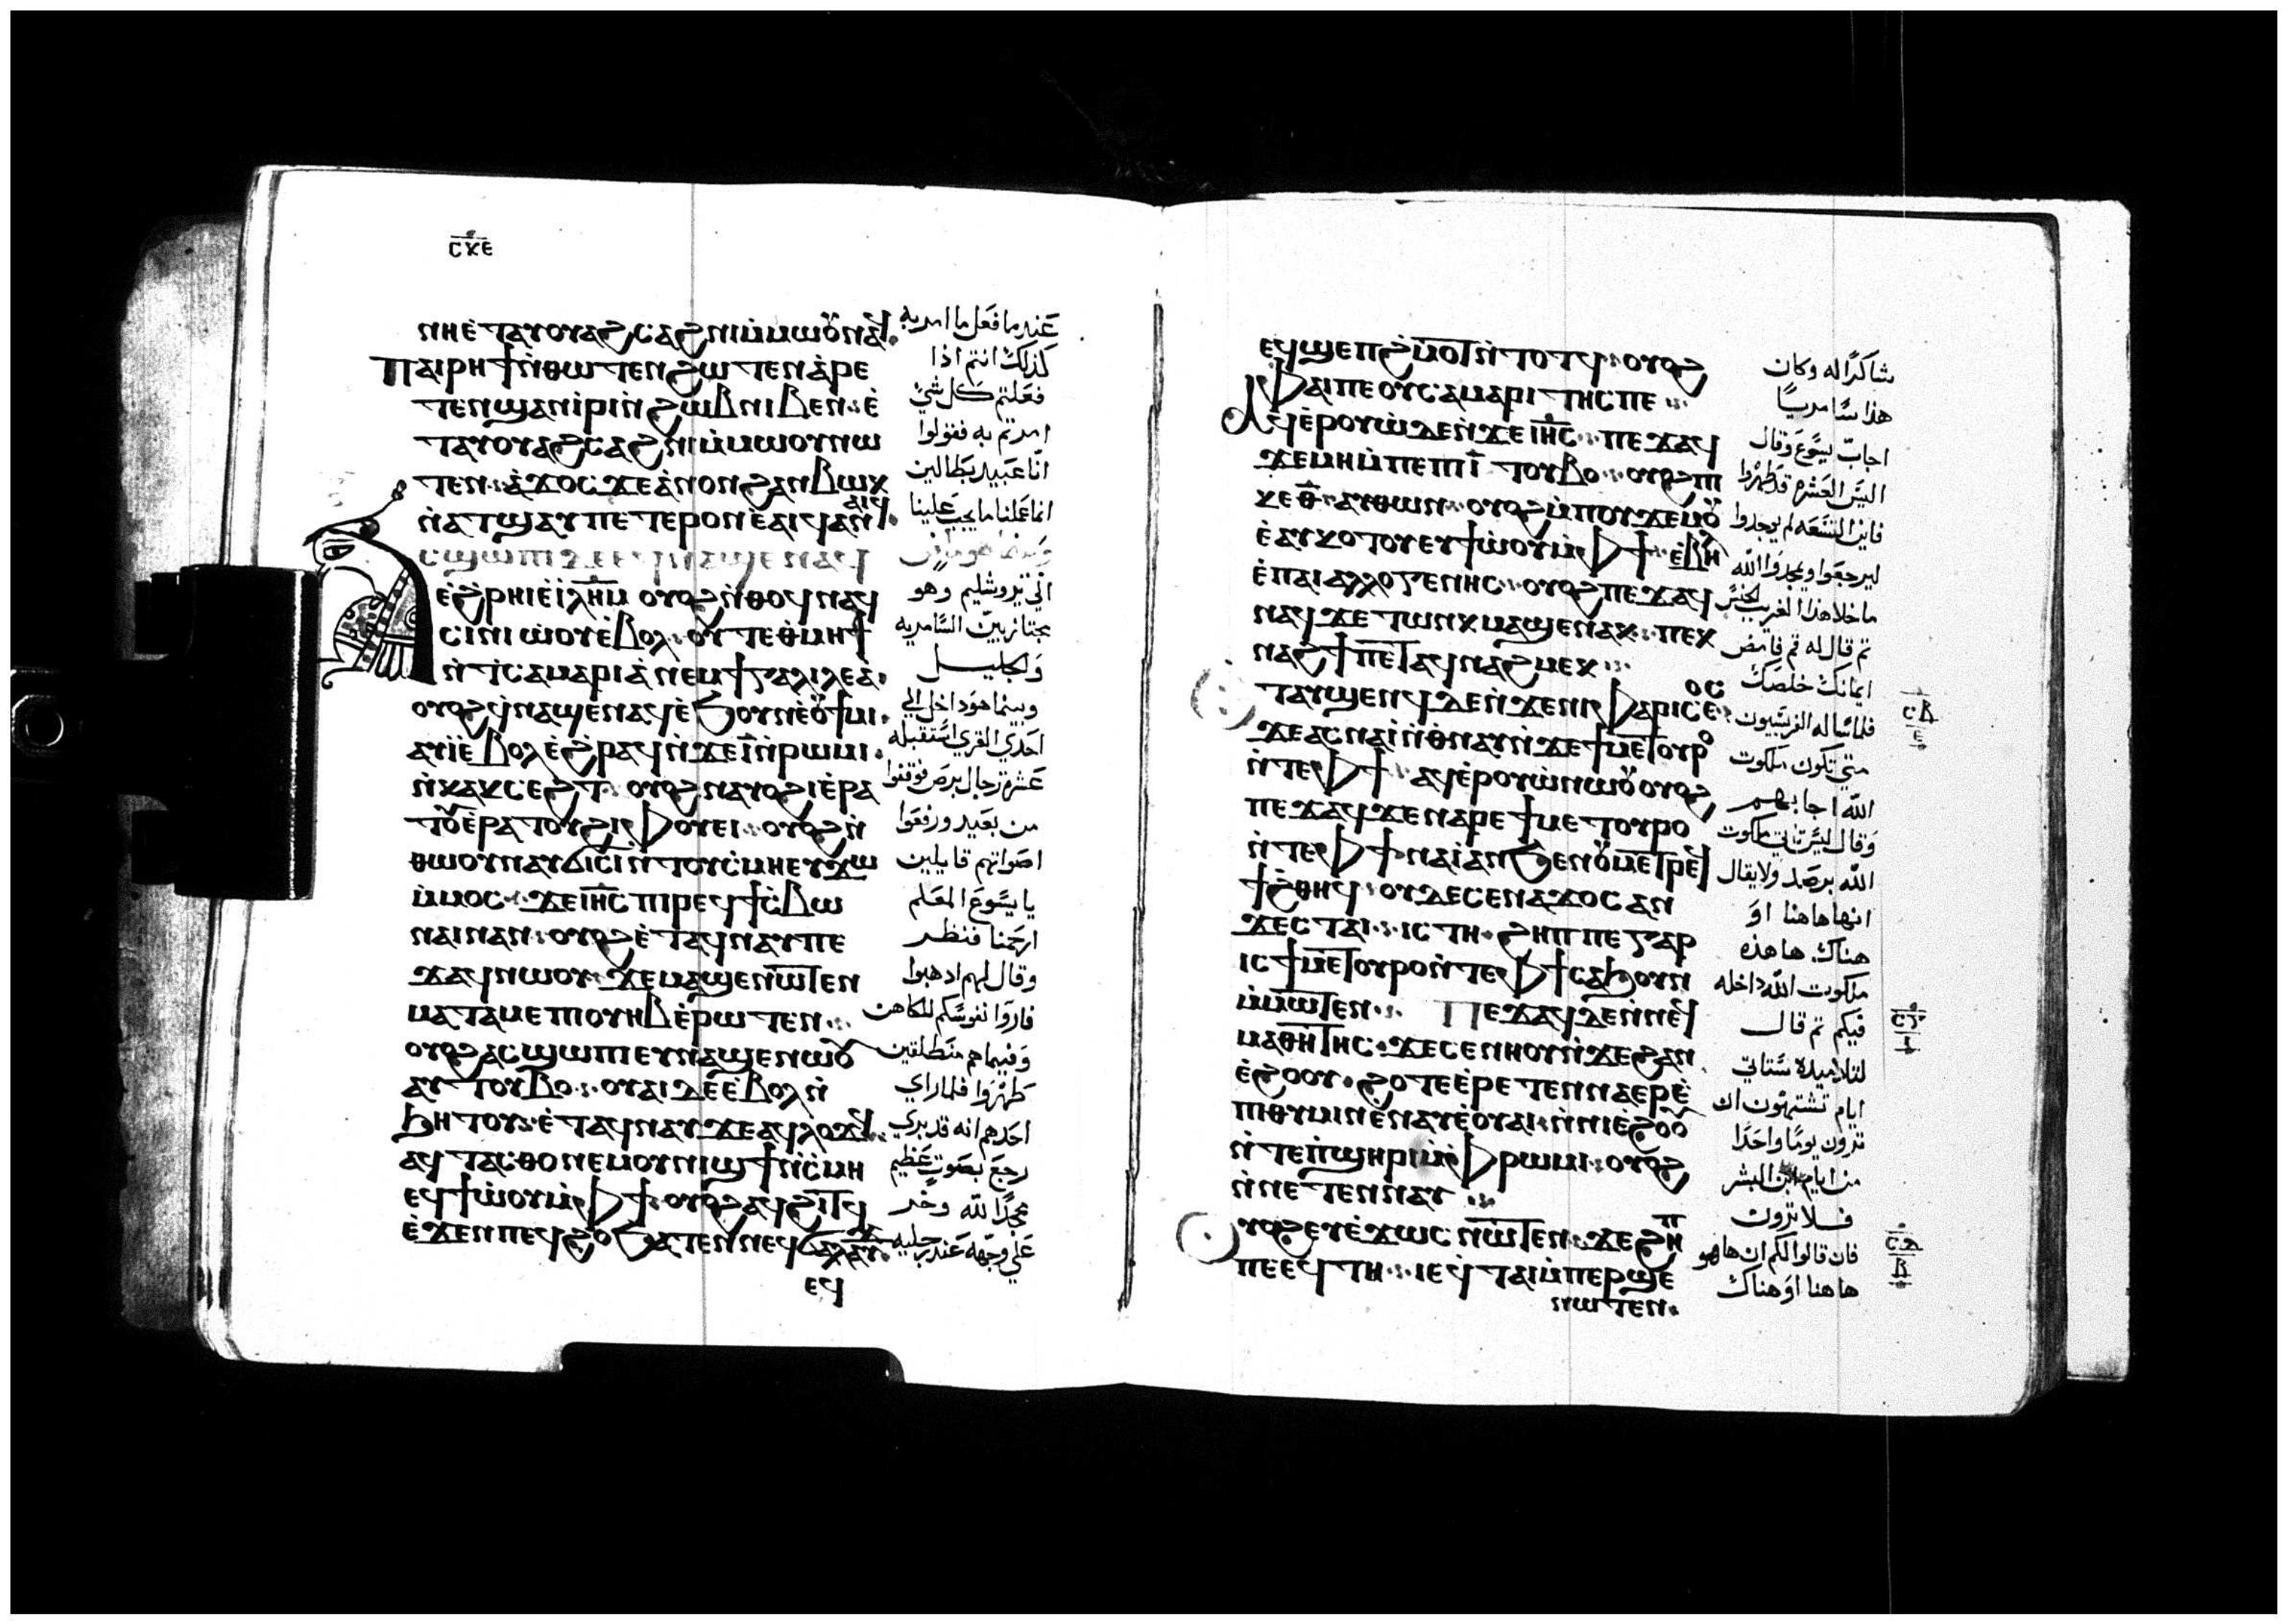 ⲥⲕⲉ
ⲛⲏⲉ̇ⲧⲁⲩⲟⲩⲁϩⲥⲁϩⲛⲓⲙ̇ⲙⲱⲟⲩⲛⲁϥ.
ⲡⲁⲓⲣⲏϯⲛ̇ⲑⲱⲧⲉⲛϩⲱⲧⲉⲛⲁ̇ⲣⲉ
ⲧⲉⲛϣⲁⲛⲓ̇ⲣⲓⲛ̇ϩⲱⲃⲛⲓⲃⲉⲛ⁖ⲉ̇
ⲧⲁⲩⲟⲩⲁϩⲥⲁϩⲛⲓⲙ̇ⲙⲱⲟⲩⲛⲱ
ⲧⲉⲛ⁖ⲁ̇ϫⲟⲥϫⲉⲁ̇ⲛⲟⲛϩⲁⲛⲃⲱⲕ
ⲛ̇ⲁⲧϣⲁⲩⲡⲉⲧⲉⲣⲟⲛⲉ̇ⲁⲓϥⲁⲛ
ⲁⲓϥ.
ⲥϣⲱⲡⲓⲇⲉⲉϥⲛⲁϣⲉⲛⲁϥ
ⲉ̇ϩⲣⲏⲓⲉ̇ⲓⲗⲏⲙ ⲟⲩⲟϩⲛ̇ⲑⲟϥⲛⲁϥ
ⲥⲓⲛⲓⲱ̇ⲟⲩⲉ̇ⲃⲟⲗ⁖ⲟⲩⲧⲉⲑ̇ⲙⲏϯ
ⲛ̇ϯⲥⲁⲙⲁⲣⲓⲁ̇ⲛⲉⲙϯⲅⲁⲗⲓⲗⲉⲁ̇.
ⲟⲩⲟϩϥ̇ⲛⲁϣⲉⲛⲁϥⲉ̇ϧⲟⲩⲛⲉ̇ⲟⲩϯⲙⲓ.
ⲁⲩⲓ̇ⲉ̇ⲃⲟⲗⲉ̇ϩⲣⲁϥⲛ̇ϫⲉⲓ̅ⲛ̇ⲣⲱⲙⲓ.
ⲛ̇ⲕⲁⲕⲥⲉϩⲧ⁖ⲟⲩⲟϩⲛⲁⲩⲟϩⲓⲉ̇ⲣⲁ
ⲧⲟⲩⲉ̇ⲣⲁⲧⲟⲩϩⲓⲫⲟⲩⲉⲓ⁖ⲟⲩⲟϩⲛ̇
ⲑⲱⲟⲩⲛⲁⲩϭⲓⲥⲓⲛ̇ⲧⲟⲩⲥ̇ⲙⲏⲉⲩϫⲱ
ⲙ̇ⲙⲟⲥ⁖ϫⲉⲓⲏⲥ̅ⲡⲓⲣⲉϥϯⲥ̇ⲃⲱ
ⲛⲁⲓⲛⲁⲛ⁖ⲟⲩⲟϩⲉ̇ⲧⲁϥⲛⲁⲩⲡⲉ
ϫⲁϥⲛⲱⲟⲩ⁖ϫⲉⲙⲁϣⲉⲛⲱⲧⲉⲛ
ⲙⲁⲧⲁⲙⲉⲡⲓⲟⲩⲏⲃⲉ̇ⲣⲱⲧⲉⲛ⁖
ⲟⲩⲟϩⲁⲥϣⲱⲡⲓⲉⲩⲛⲁϣⲉⲛⲱⲟⲩ
ⲁⲩⲧⲟⲩⲃⲟ⁖ⲟⲩⲁⲓⲇⲉⲉ̇ⲃⲟⲗⲛ̇
ϧⲏⲧⲟⲩ⁖ⲉ̇ⲧⲁϥⲛⲁⲩϫⲉⲁϥⲗⲟϫϥ.
ⲁϥⲧⲁⲥⲑⲟⲛⲉⲙⲟⲩⲛⲓϣϯⲛ̇ⲥ̇ⲙⲏ
ⲉϥϯⲱ̇ⲟⲩⲙ̇ⲫϯ⁖ⲟⲩⲟϩⲁϥϩⲓⲧϥ
ⲉ̇ϫⲉⲛⲡⲉϥϩⲟϧⲁⲧⲉⲛⲛⲉϥϭⲁⲗⲁⲩϫ.
ⲉϥ
عندما فعل ما امر به
كذلك انتم اذا
فعلتم كل شي
امرتم به فقولوا
انا عبيد بطالين
انما عملنا ما يجب علينا
الي يروشليم وهو
مجتاز بين السامريه
والجليل
وبينما هو داخل الي
احدي القري استقبله
عشرة رجال برص فوقفوا
من بعيد ورفعوا
اصواتهم قايلين
يا يسوع المعلم
ارحمنا فنظر
وقال لهم اذهبوا
فاروا نفوسكم للكاهن
وفيما هم منطلقين
طهروا فلما راي
احدهم انه قد بري
رجع بصوت عظيم
مجدا لله وخر
علي وجهه عند رجليه
ⲉϥϣⲉⲡϩ̇ⲙⲟⲧⲛ̇ⲧⲟⲧϥ⁖ⲟⲩⲟϩ
ⲛⲉⲫⲁⲓⲡⲉⲟⲩⲥⲁⲙⲁⲣⲓⲧⲏⲥⲡⲉ⁖
ⲁϥⲉ̇ⲣⲟⲩⲱ̇ⲇⲉⲛ̇ϫⲉⲓⲏⲥ̅⁖ⲡⲉϫⲁϥ
ϫⲉⲙⲏⲙ̇ⲡⲉⲡⲓⲓ̅ ⲧⲟⲩⲃⲟ⁖ⲟⲩⲟϩⲡⲓ
ⲕⲉⲑ̅⁖ⲁⲩⲑⲱⲛ⁖ⲟⲩⲟϩⲙ̇ⲡⲟⲩϫⲉⲙⲟⲩ
ⲉ̇ⲁⲩⲕⲟⲧⲟⲩⲉⲩϯⲱ̇ⲟⲩⲙ̇ⲫϯ⁖ⲉ̇ⲃⲏⲗ
ⲉ̇ⲡⲁⲓⲁⲗⲗⲟⲅⲉⲛⲏⲥ⁖ⲟⲩⲟϩⲡⲉϫⲁϥ
ⲛⲁϥϫⲉⲧⲱⲛⲕⲙⲁϣⲉⲛⲁⲕ⁖ⲡⲉⲕ
ⲛⲁϩϯⲡⲉⲧⲁϥⲛⲁϩⲙⲉⲕ⁖
ⲟⲥ
ⲧⲁⲩϣⲉⲛϥⲇⲉⲛ̇ϫⲉⲛⲓⲫⲁⲣⲓⲥⲉ⁖
ϫⲉⲁⲥⲛⲁⲓ̇ⲛ̇ⲑⲛⲁⲩⲛ̇ϫⲉϯⲙⲉⲧⲟⲩⲣⲟ
ⲛ̇ⲧⲉⲫϯ⁖ⲁϥⲉ̇ⲣⲟⲩⲱ̇ⲛⲱⲟⲩⲟⲩⲟϩ
ⲡⲉϫⲁϥϫⲉⲛⲁⲣⲉϯⲙⲉⲧⲟⲩⲣⲟ
ⲛ̇ⲧⲉⲫϯⲛⲁⲓ̇ⲁⲛϧⲉⲛⲟⲩⲙⲉⲧⲣⲉϥ
ϯϩ̇ⲑⲏϥ⁖ⲟⲩⲇⲉⲥⲉⲛⲁϫⲟⲥⲁⲛ
ϫⲉⲥⲧⲁⲓ⁖ⲓⲥⲧⲏ⁖ϩⲏⲡⲡⲉⲅⲁⲣ
ⲓⲥϯⲙⲉⲧⲟⲩⲣⲟⲛ̇ⲧⲉⲫϯⲥⲁϧⲟⲩⲛ
ⲙ̇ⲙⲱⲧⲉⲛ⁖ ⲡⲉϫⲁϥⲇⲉⲛ̇ⲛⲉϥ
ⲙⲁⲑⲏⲧⲏⲥ⁖ϫⲉⲥⲉⲛⲏⲟⲩⲛ̇ϫⲉϩⲁⲛ
ⲉ̇ϩⲟⲟⲩ⁖ϩⲟⲧⲉⲉ̇ⲣⲉⲧⲉⲛⲛⲁⲉⲣⲉ̇
ⲡⲓⲑⲩⲙⲓⲛⲉ̇ⲛⲁⲩⲉ̇ⲟⲩⲁⲓ⁖ⲛ̇ⲛⲓⲉ̇ϩⲟⲟⲩ
ⲛ̇ⲧⲉⲡ̇ϣⲏⲣⲓⲙ̇ⲫⲣⲱⲙⲓ⁖ⲟⲩⲟϩ
ⲛ̇ⲛⲉⲧⲉⲛⲛⲁⲩ ⁖
ⲟⲩⲟϩⲉⲩⲉ̇ϫⲱⲥⲛⲱⲧⲉⲛ⁖ϫⲉϩⲏⲡ
ⲡⲉⲉϥⲧⲏ⁖ⲓⲉϥⲧⲁⲓⲙ̇ⲡⲉⲣϣⲉ
ⲛⲱⲧⲉⲛ⁖
شاكرا له وكان
هذا سامريا
اجاب يسوع وقال
اليس العشره قد طهروا
فاين التسعه لم يوجدوا
ليرجعوا ويمجدوا الله
ما خلا هذا الغريب الجنس
ثم قال له قم فامض
ايمانك خلصك
فلما ساله الفريسيون
متي تكون ملكوت
الله اجابهم
وقال ليس تاتي ملكوت
الله برصد ولا يقال
انها هاهنا او
هناك. ها هذه
ملكوت الله داخله
فيكم ثم قال
لتلاميذه ستاتي
ايام تشتهون ان
ترون يوما واحدا
من ايام ابن البشر
فلا ترون
فان قالوا لكم ان ها هو
هاهنا او هناك
ⲥⲃ
ⲉ
ⲥⲅ
ⲓ
ⲥⲇ
ⲃ